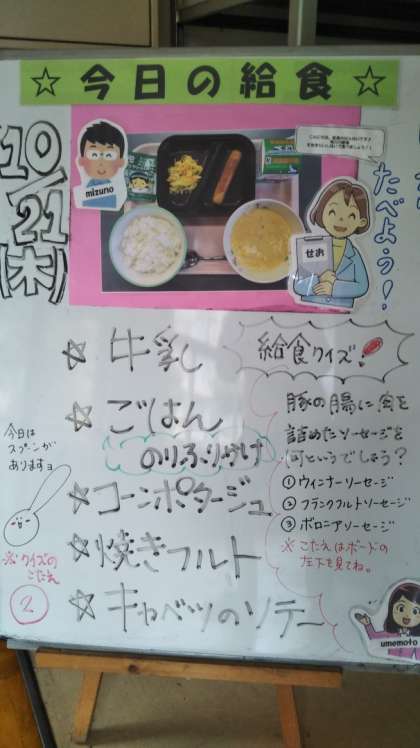 ☆今日の給食☆
10/21(木)
mizuno
たべよう！
せお
☆牛乳
☆ごはん
のりふりかけ
☆コーンポタージュ
☆焼きフルト
☆キャベツのソテー
給食クイズ！
豚の腸に肉を
詰めたソーセージを
何というでしょう？
①ウィンナーソーセージ
②フランクフルトソーセージ
③ボロニアソーセージ
※こたえはボードの
左下を見てね。
今日は
スプーンが
ありますョ
※クイズの
こたえ
2
umemoto